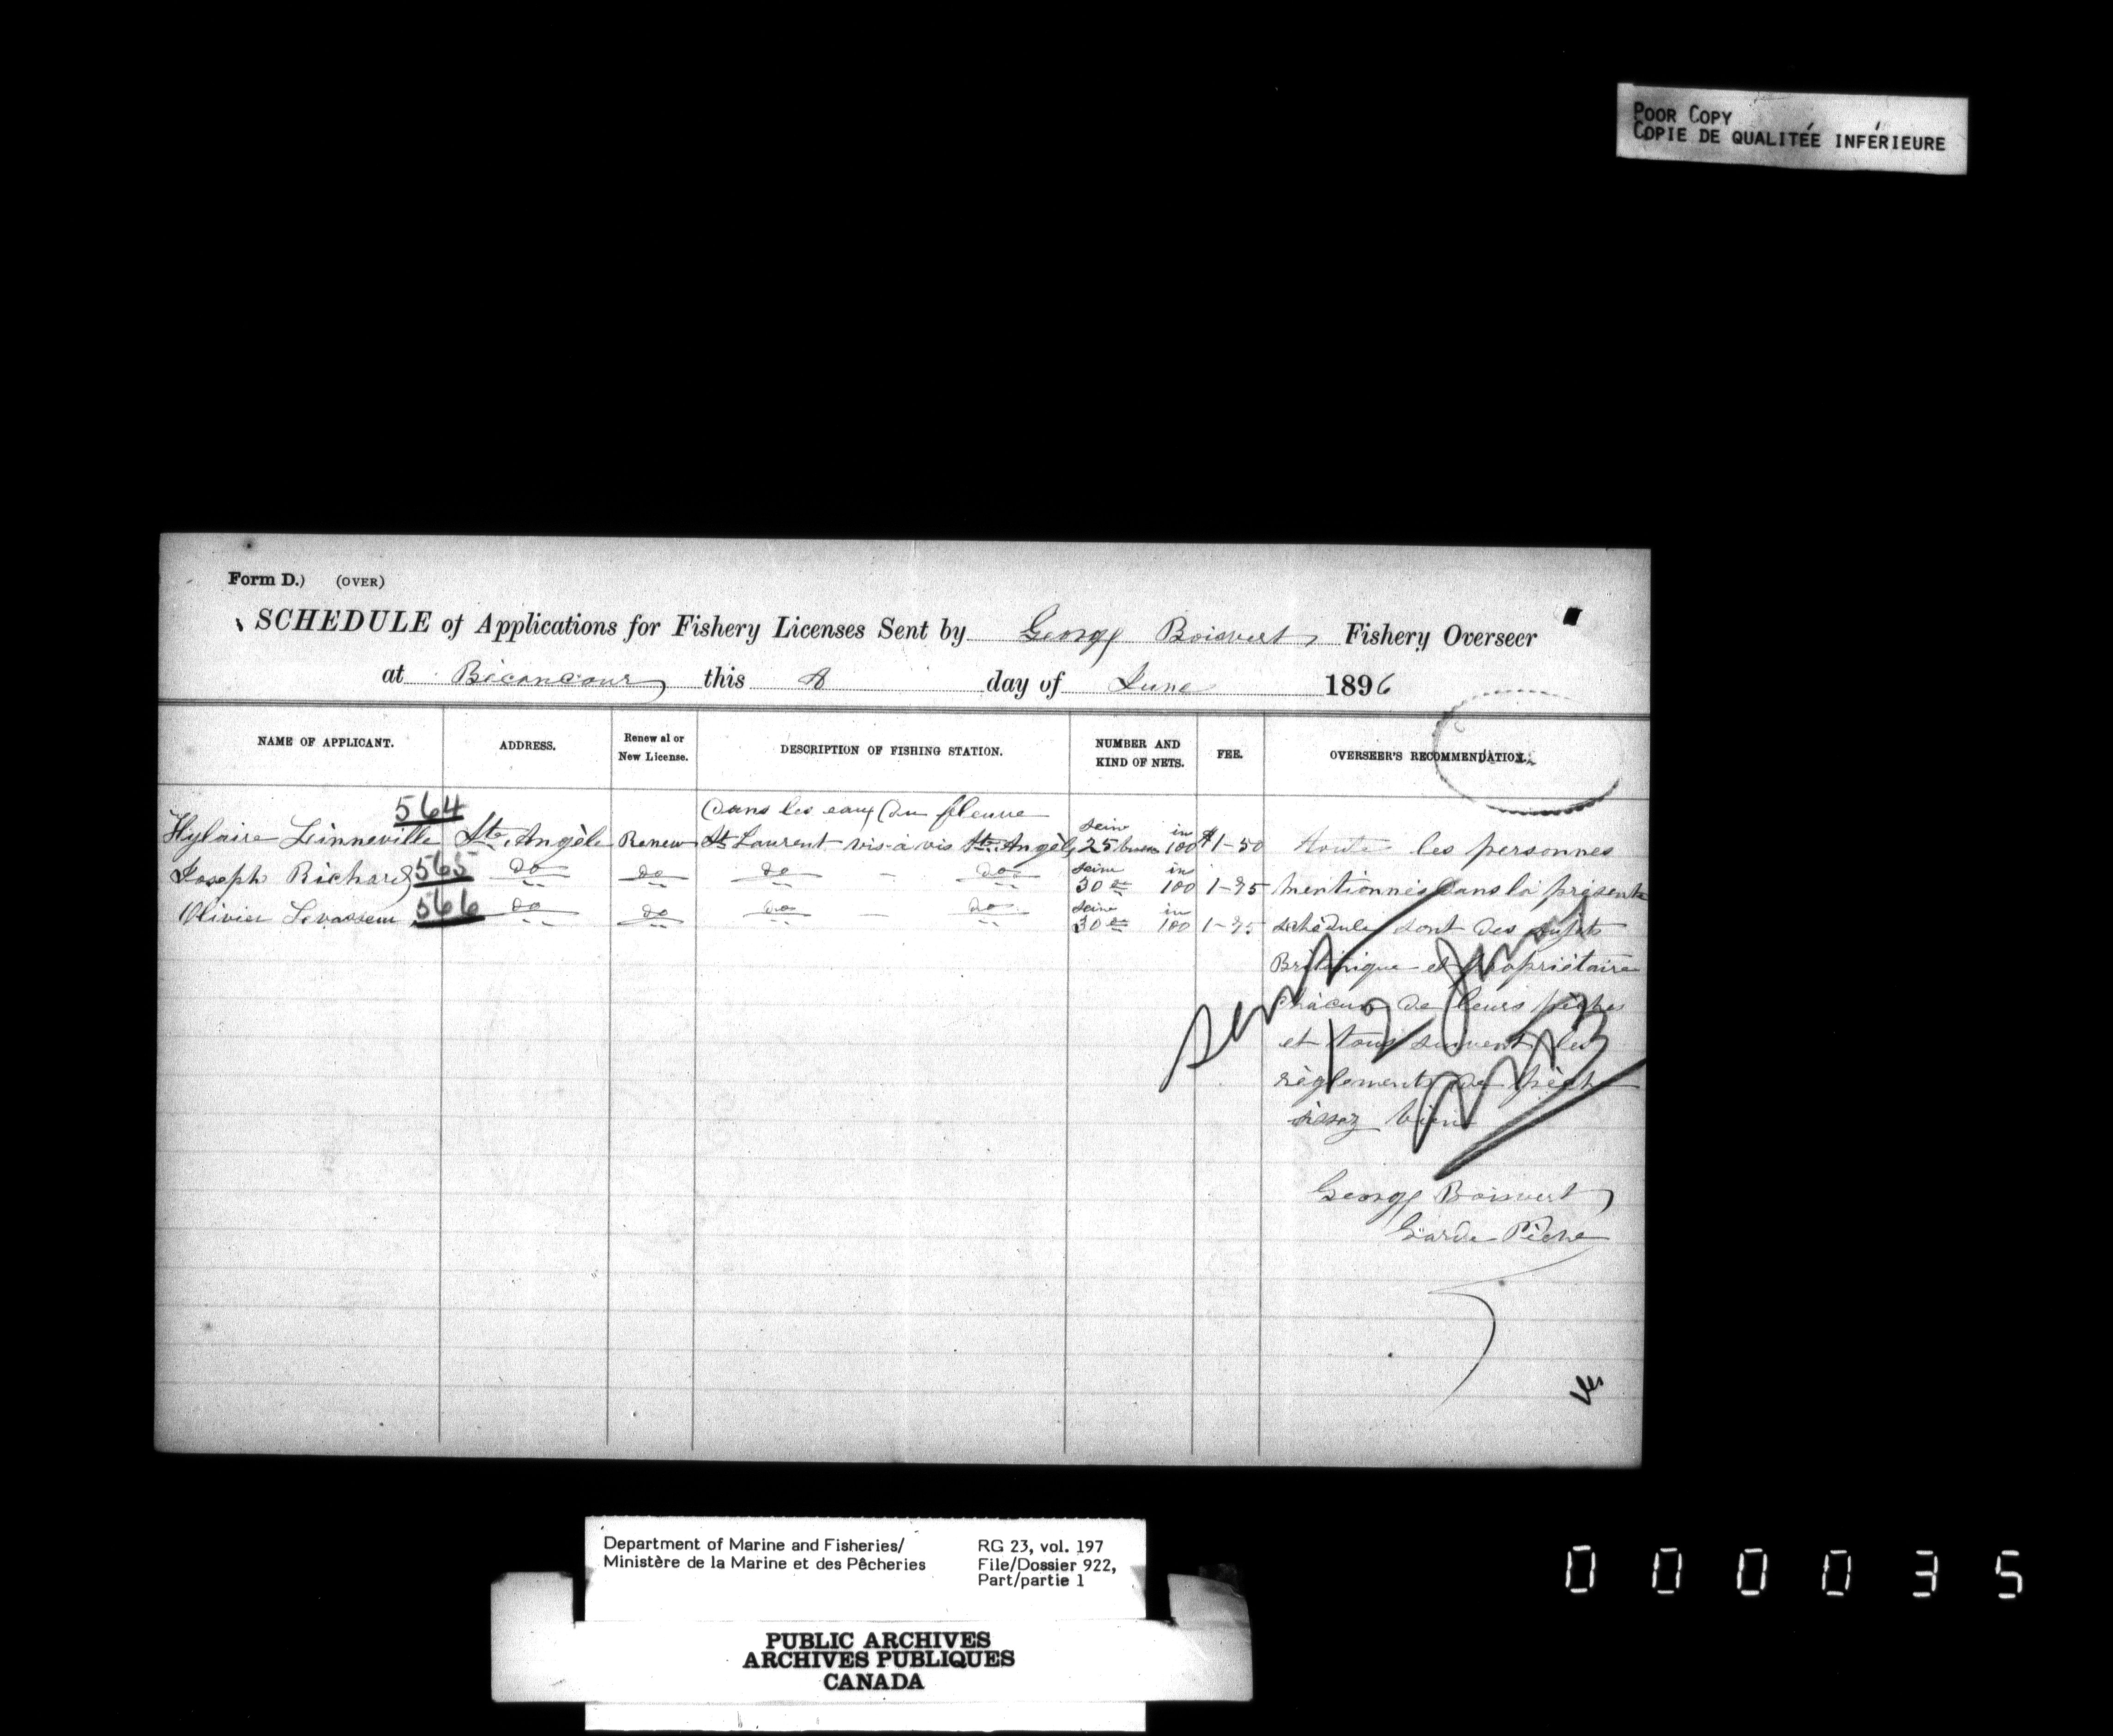 POOR COPY
COPIE DE QUALITÉE INFÉRIEURE
Form D.) (OVER)
SCHEDULE of Applications for Fishery Licenses Sent by George Boisvert Fishery Overseer
at Bécancour this 8 day of June 1896
NAME OF APPLICANT. ADDRESS. Renewal or New License. DESCRIPTION OF FISHING STATION. NUMBER AND KIND OF NETS. FEE. OVERSEER'S RECOMMENDATION.
564 Dans les eaux du fleuve
Hylaire Linneville Ste. Angèle Renew St Laurent vis-à vis Ste. Angèle seine 25 brasses in 100 $1-50 Toutes les personnes
Joseph Richard 565 do do do - do seine 30 do in 100 1-75 mentionnés dans la présente
Olivier Levasseur 566 do do do - do seine 30 do in 100 1-75 schédule sont des sujets
Britanique et propriétaire
chacun de leurs pêches
et tous suivent les
règlements de pêche
assez bien
sent 12 June
George Boisvert
Garde Pêche
Department of Marine and Fisheries/
Ministère de la Marine et des Pêcheries
RG 23, vol. 197
File/Dossier 922,
Part/partie 1
PUBLIC ARCHIVES
ARCHIVES PUBLIQUES
CANADA
000035